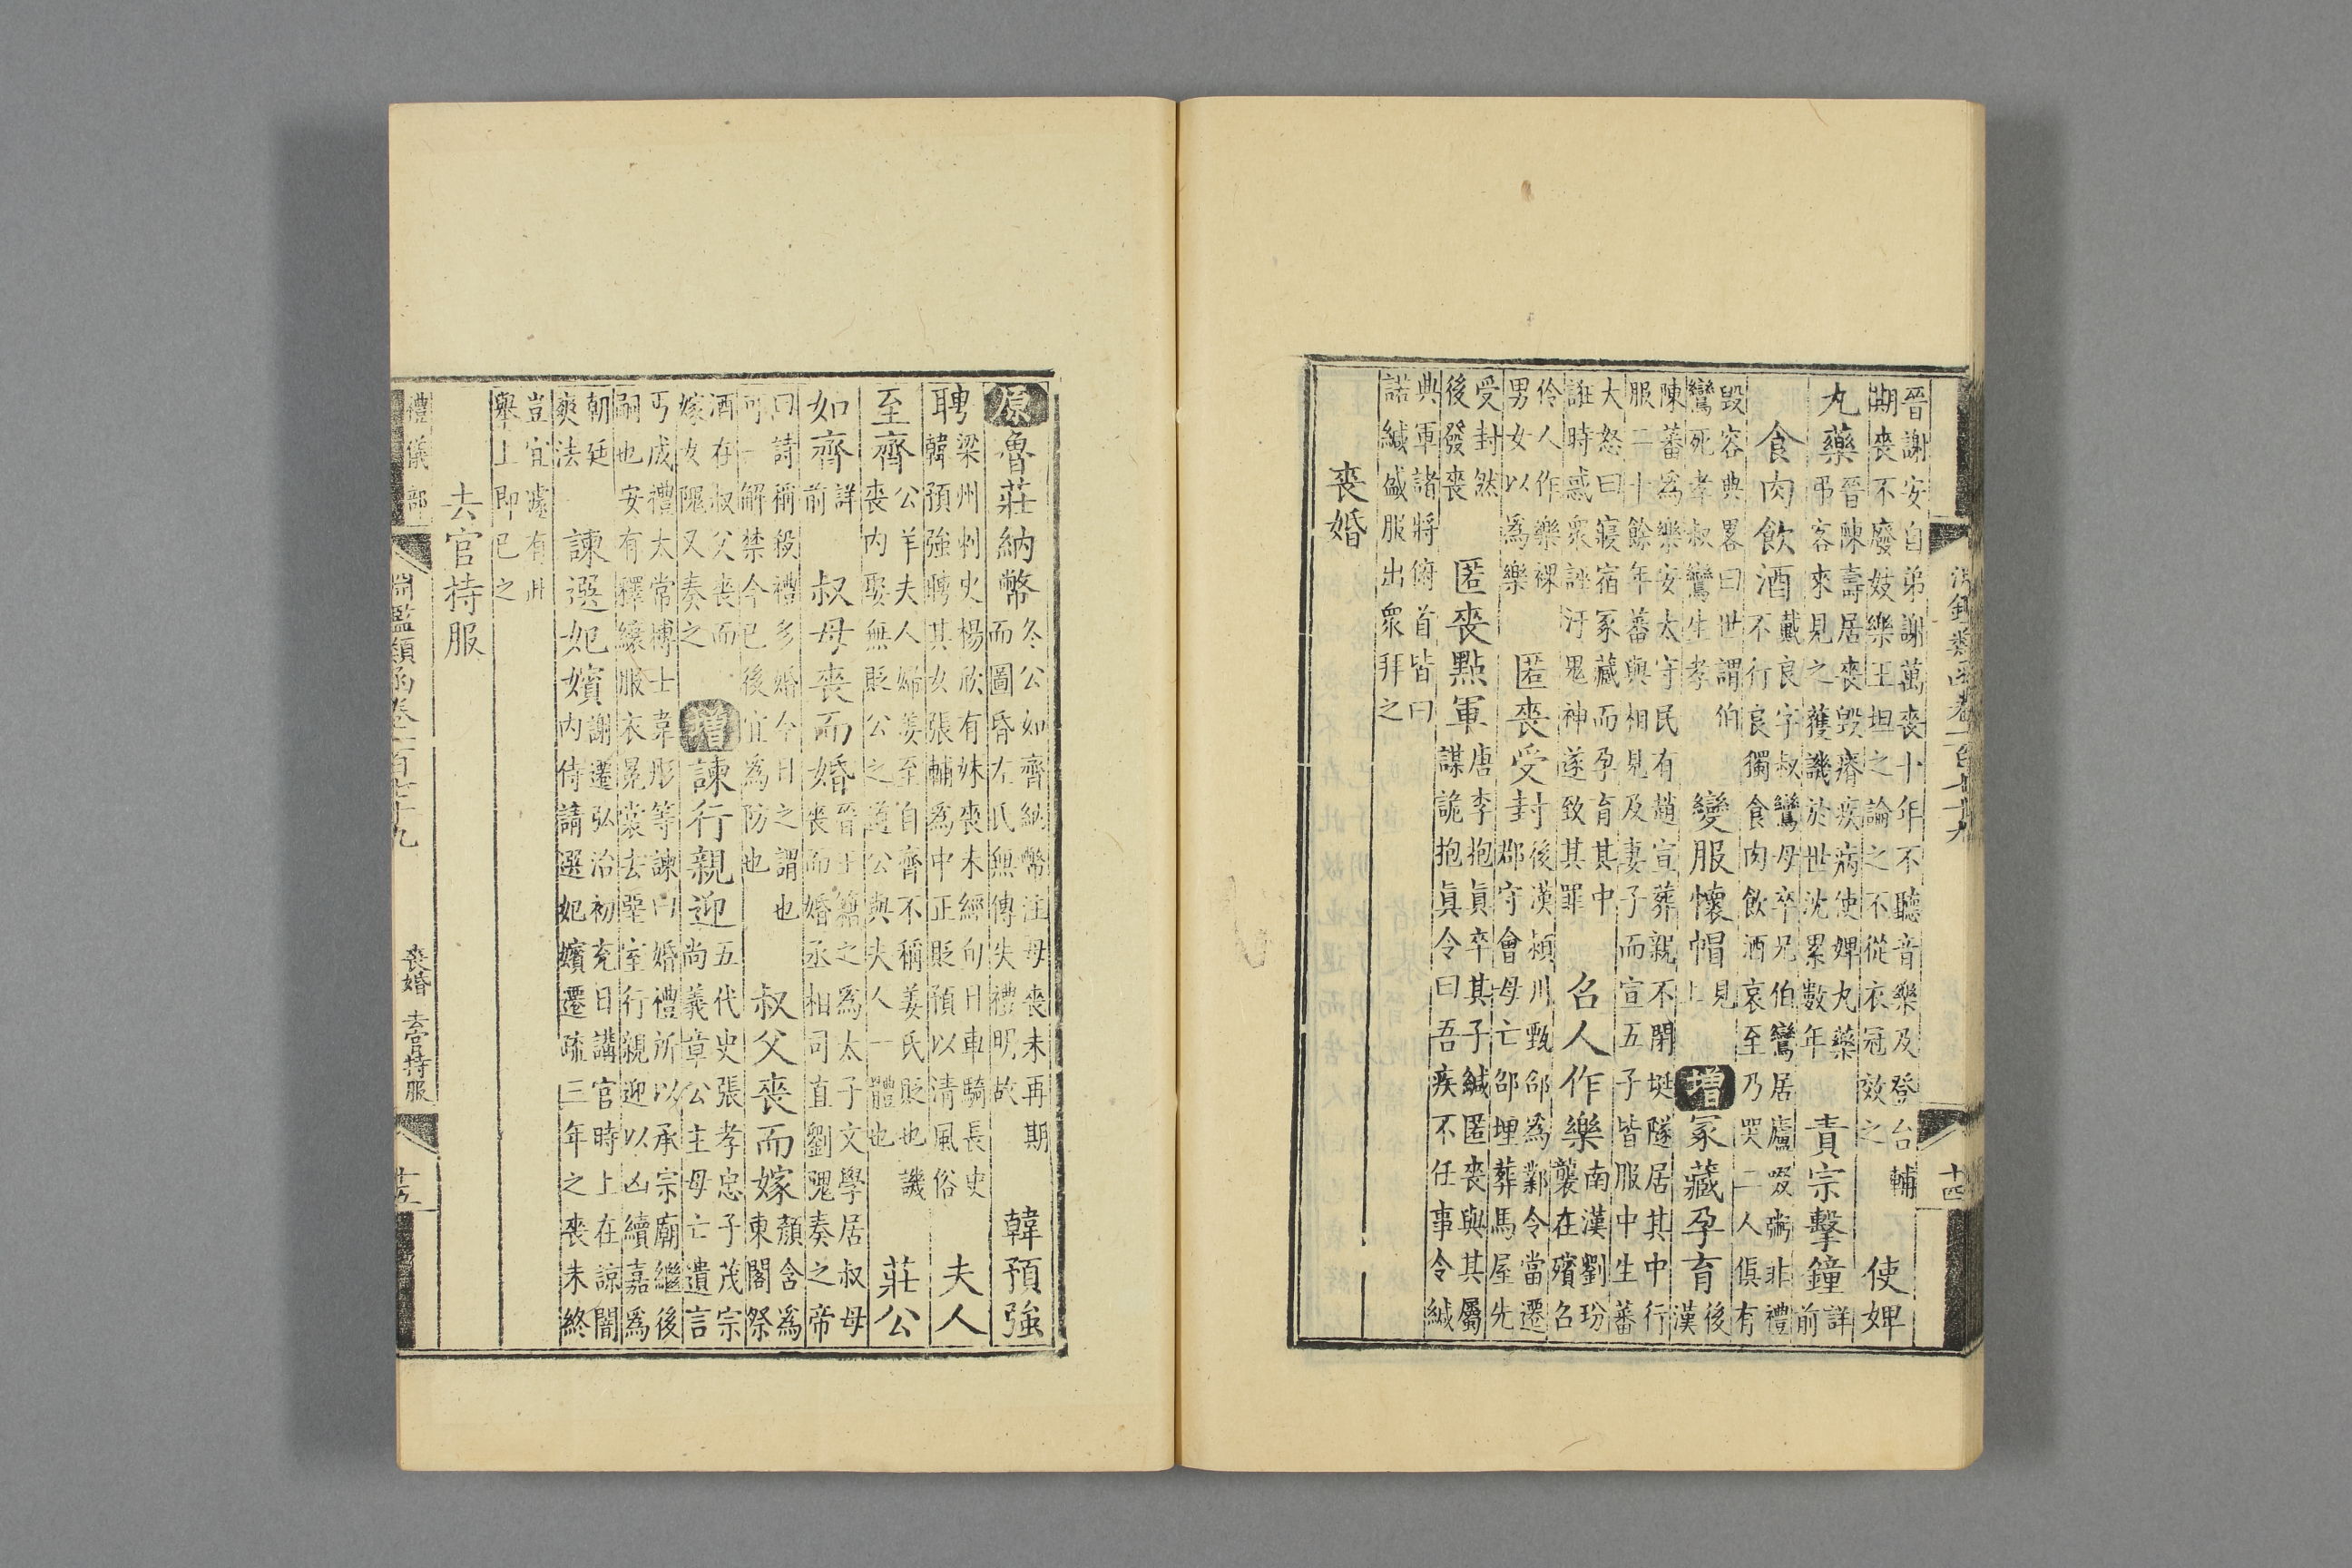 晉謝安自弟謝萬喪十年不聽音樂及登台輔
期喪不廢妓樂王坦之論之不從衣冠效之 使婢
丸藥 晉陳壽居喪毀瘠疾病使婢丸藥
弔客來見之獲譏於世沈累數年 責宗擊鐘 詳
前
食肉飲酒 戴良字叔鸞母卒兄伯鸞居廬啜粥非禮
不行良獨食肉飲酒哀至乃哭二人俱有
毀容典畧曰世謂伯
鸞死孝叔鸞生孝 變服懷帽 見
上 增 冢藏孕育 後
漢
陳蕃為樂安太守民有趙宣葬親不閉埏隧居其中行
服二十餘年蕃與相見及妻子而宣五子皆服中生蕃
大怒曰寢宿冢藏而孕育其中
誑時惑衆誣汙鬼神遂致其罪 召人作樂 南漢劉玢
襲在殯召
伶人作樂裸
男女以為樂 匿喪受封 後漢潁川甄邵為鄴令當遷
郡守會母亡邵埋葬馬屋先
受封然
後發喪 匿喪點軍 唐李抱眞卒其子緘匿喪與其屬
謀詭抱眞令曰吾疾不任事令緘
典軍諸將俯首皆曰
諾緘盛服出衆拜之
喪婚
原 魯莊納幣 冬公如齊納幣注母喪未再期
而圖昏左氏無傳失禮明故 韓預強
聘 梁州刺史楊欣有妹喪未經旬日車騎長史
韓預強聘其女張輔為中正貶預以清風俗 夫人
至齊 公羊夫人婦姜至自齊不稱姜氏貶也譏
喪内娶無貶公之道公與夫人一體也 莊公
如齊 詳
前 叔母喪而婚 晉王籍之為太子文學居叔母
喪而婚丞相司直劉隗奏之帝
曰詩稱殺禮多婚今日之謂也
可一解禁今已後宜為防也 叔父喪而嫁 顏含為
東閣祭
酒在叔父喪而
嫁女隗又奏之 增 諫行親迎 五代史張孝忠子茂宗
尚義章公主母亡遺言
丐成禮太常博士韋彤等諫曰婚禮所以承宗廟繼後
嗣也安有釋縗服衣冕裳去堊室行親迎以凶續嘉為
朝廷
爽法 諫選妃嬪 謝遷弘治初充日講官時上在諒闇
内侍請選妃嬪遷疏三年之喪未終
豈宜遽有此
舉上即巳之
去官持服
禮儀部
淵鑑類函卷一百七十九
喪婚 去官持服
十五
十四